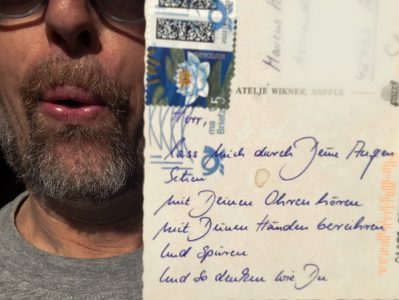 Marcus
ATELJE WIKNER, SÄFFLE
Herr,
lass mich durch Deine Augen
Sehen
mit Deinen Ohren hören
mit Deinen Händen berühren
Und spüren
Und so denken wie Du